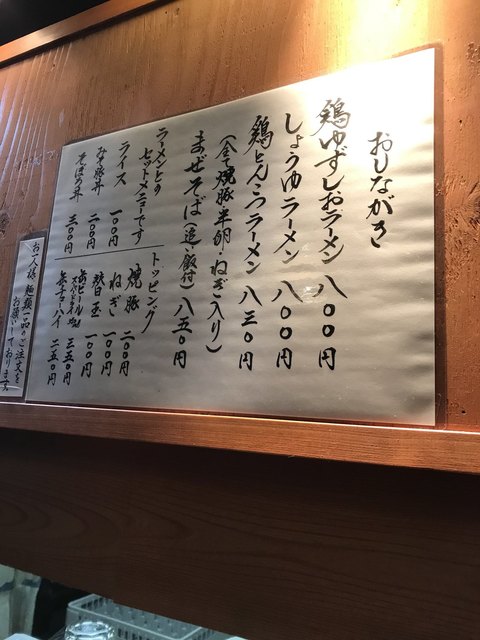 おしながき
鶏ゆずしおラーメン 八〇〇円
しょうゆラーメン 八〇〇円
鶏とんこつラーメン 八三〇円
(全て焼豚・半卵・ねぎ入り)
まぜそば(追い飯付) 八五〇円
ラーメンとの
セットメニューです
ライス 一〇〇円
みそ豚丼 二〇〇円
そぼろ丼 三〇〇円
トッピング
焼豚 二〇〇円
ねぎ 一〇〇円
替玉 一〇〇円
缶ビール 三五〇円
缶チューハイ 二五〇円
お一人様、麺類一品のご注文を
お願いしております。